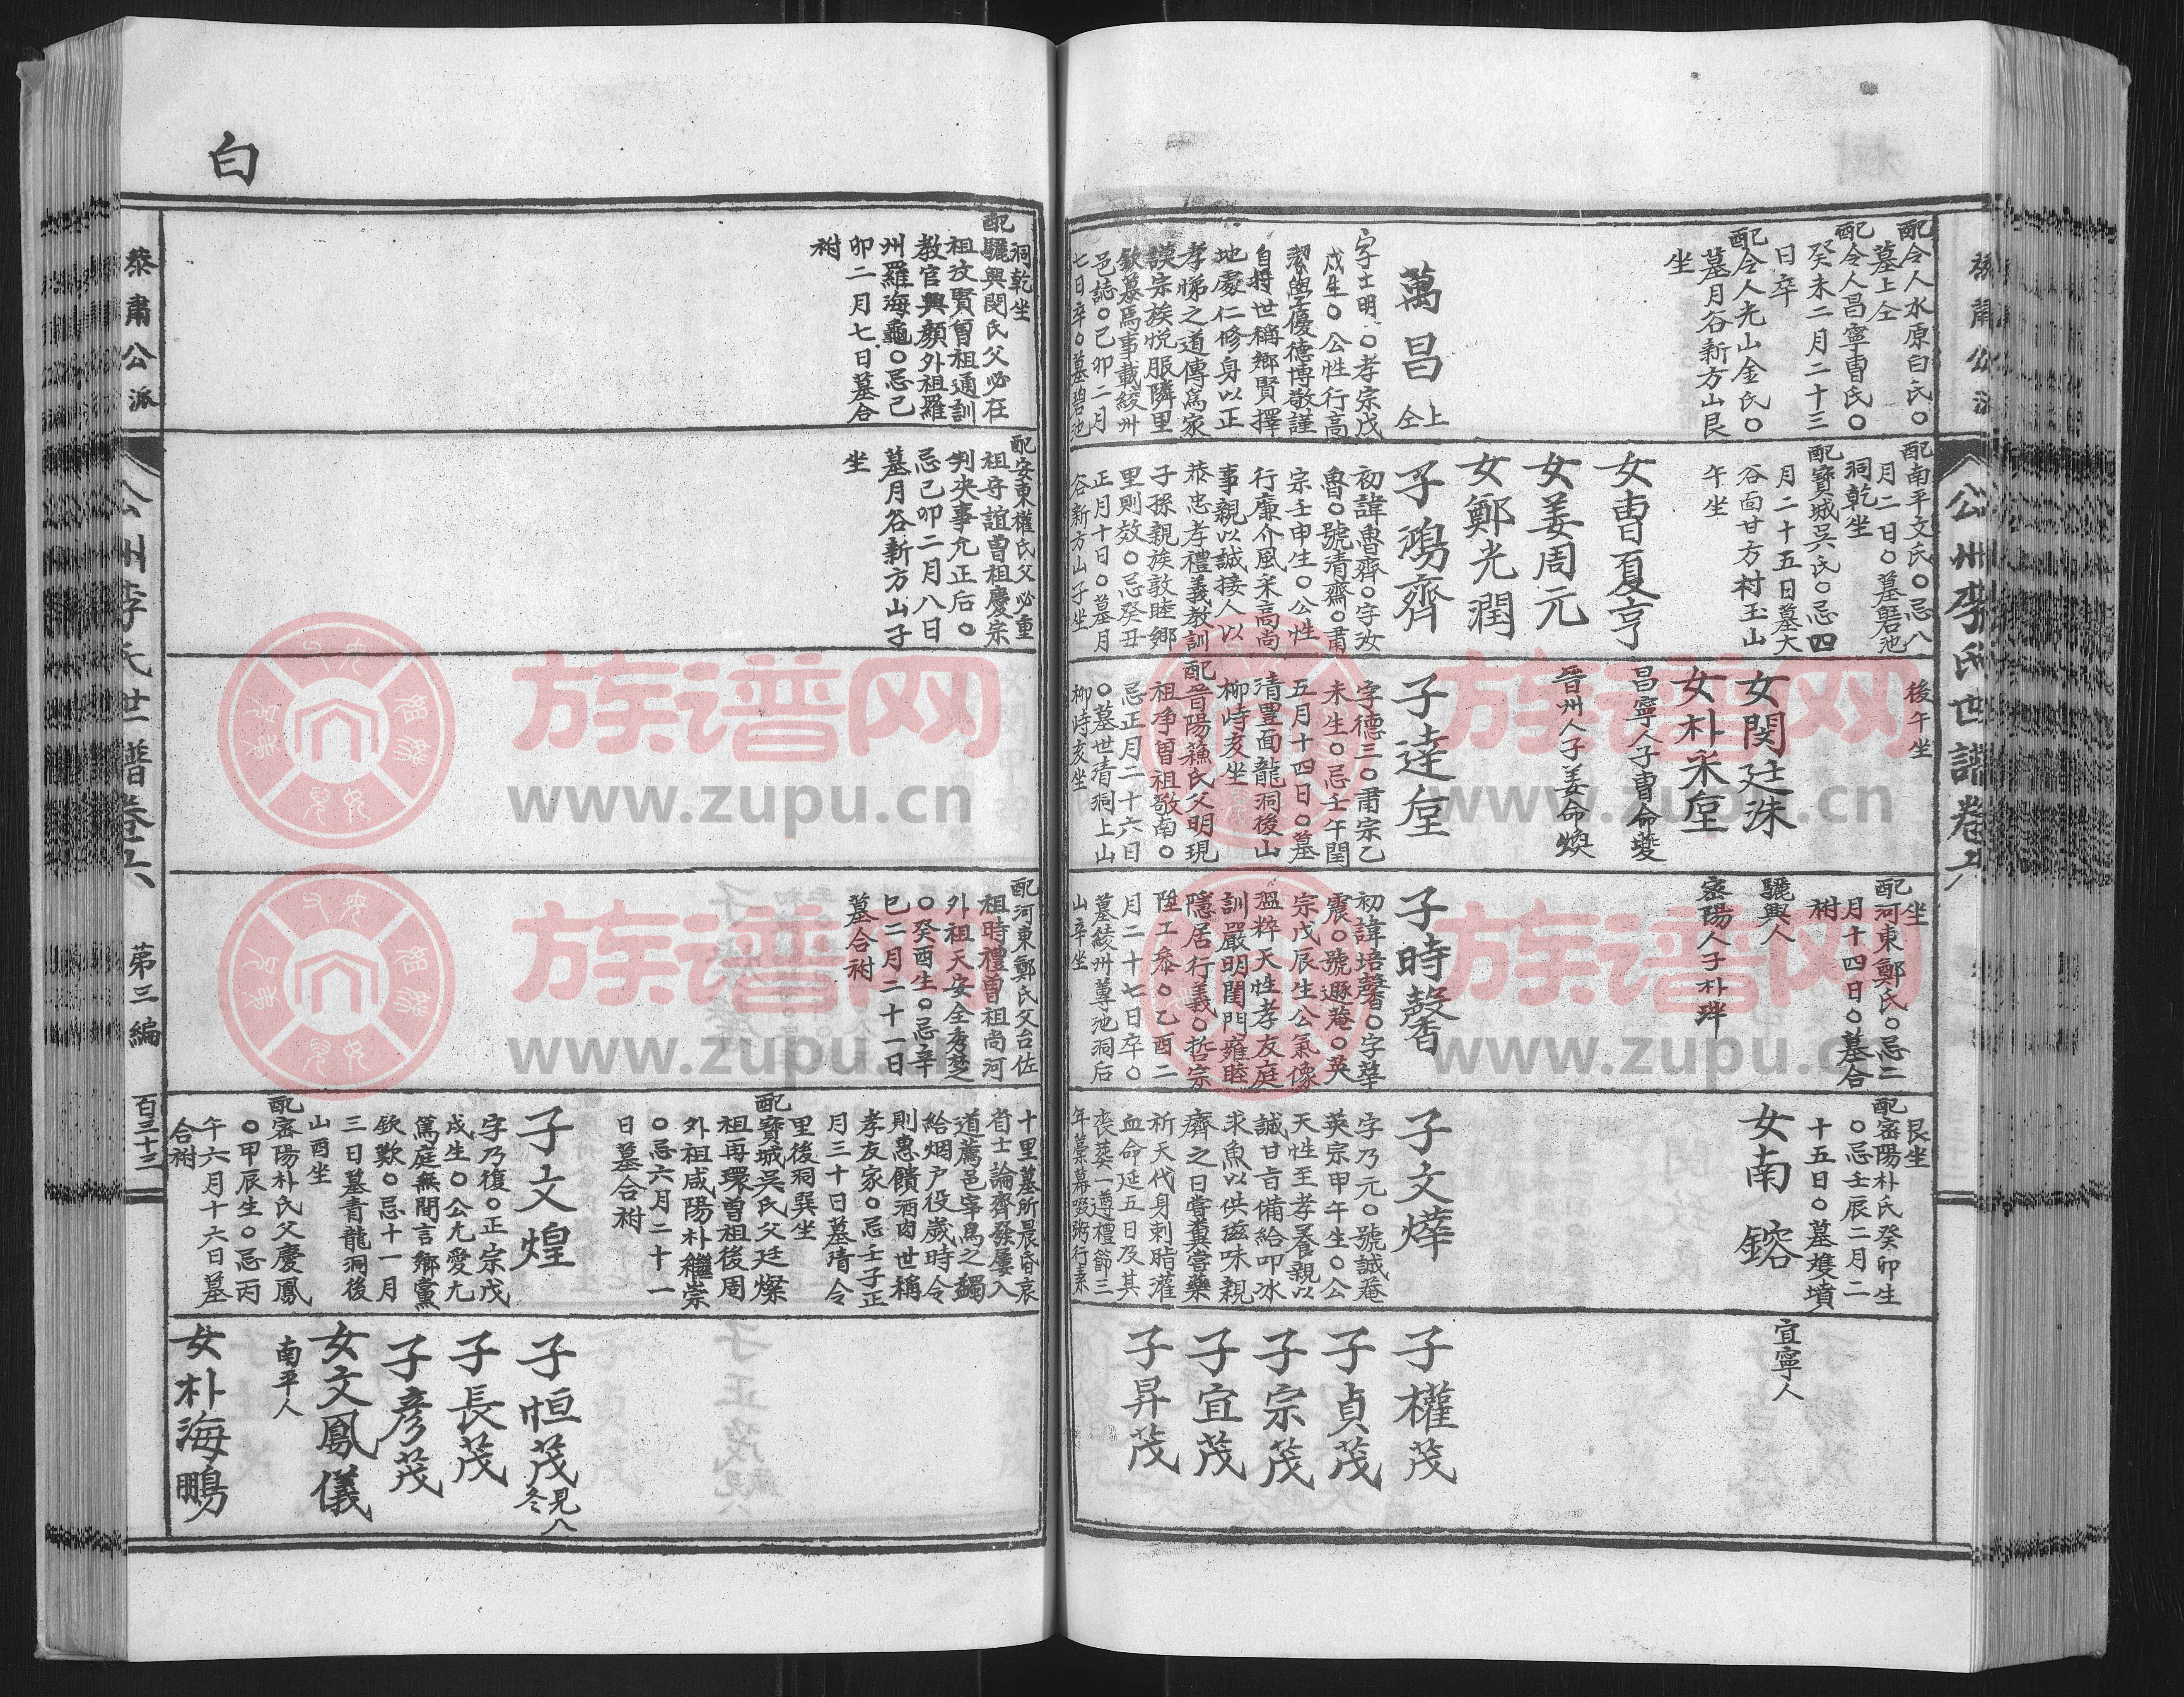 公州李氏世譜卷六
配令人水原白氏○
墓上仝
配令人昌寧曺氏○
癸未二月二十三
日卒
配令人光山金氏○
墓月谷新方山艮
坐
萬昌
上仝
字士明○孝宗戊
戌生○公性行高
潔學優德博敬謹
自持世稱鄉賢擇
地處仁修身以正
孝悌之道傳爲家
謨宗族悅服隣里
欽慕焉事載綾州
邑誌○己卯二月
七日卒○墓碧池
洞乾坐
配驪興閔氏父必在
祖汝賢曾祖通訓
教官興顔外祖羅
州羅海龜○忌己
卯二月七日墓合
祔
配南平文氏○忌八
月二日○墓碧池
洞乾坐
配寶城吳氏○忌四
月二十五日墓大
谷面甘方村玉山
午坐
女曺夏亨
女姜周元
女鄭光潤
子鴻齊
初諱魯齊○字汝
魯○號清齋○肅
宗壬申生○公性
行廉介風采高尚
事親以誠接人以
恭忠孝禮義教訓
子孫親族敦睦鄉
里則效○忌癸丑
正月十日○墓月
谷新方山子坐
配安東權氏父必重
祖守誼曾祖慶宗
判決事允正后○
忌己卯二月八日
墓月谷新方山子
坐
後午坐
女閔廷洙
女朴采垕
昌寧人子曺命夔
晉州人子姜命煥
子達垕
字德三○肅宗乙
未生○忌壬午閏
五月十四日○墓
清豊面龍洞後山
柳峙亥坐
配晉陽蘓氏父明現
祖净曾祖敬南○
忌正月二十六日
○墓世清洞上山
柳峙亥坐
坐
配河東鄭氏○忌二
月十四日○墓合
祔
驪興人
密陽人子朴珜
子時馨
初諱培馨○字華
震○號遯菴○英
宗戊辰生公氣像
溫粹天性孝友庭
訓嚴明閨門雍睦
隱居行義○哲宗
陞工叅○乙酉二
月二十七日卒○
墓綾州尊池洞后
山辛坐
配河東鄭氏父台佐
祖時禮曾祖尚河
外祖天安全秀楚
○癸酉生○忌辛
巳二月二十一日
墓合祔
艮坐
配密陽朴氏癸卯生
○忌壬辰二月二
十五日○墓雙墳
女南鎔
子文燁
字乃元○號誠菴
英宗甲午生○公
天性至孝養親以
誠甘旨備給叩冰
求魚以供滋味親
癠之日嘗糞嘗藥
祈天代身刺脂灌
血命延五日及其
喪葬一遵禮節三
年藁幕啜粥行素
十里墓所晨昏哀
省士論齊發屢入
道薦邑宰爲之蠲
給烟户役歲時令
則惠饋酒肉世稱
孝友家○忌壬子正
月三十日墓清令
里後洞巽坐
配寶城吳氏父廷燦
祖再環曾祖後周
外祖咸陽朴繼崇
○忌六月二十一
日墓合祔
子文煌
字乃復○正宗戊
戌生○公尤愛尤
篤庭無間言鄉黨
欽歎○忌十一月
三日墓青龍洞後
山酉坐
配密陽朴氏父慶鳳
○甲辰生○忌丙
午六月十六日墓
合祔
宜寧人
子權茂
子貞茂
子宗茂
子宜茂
子昇茂
子恒茂
見八冬
子長茂
子彦茂
女文鳳儀
南平人
女朴海鵬
白
恭肅公派
公州李氏世譜卷六
第三編
百三十三
族谱网
www.zupu.cn
族谱网
www.zupu.cn
族谱网
www.zupu.cn
族谱网
www.zupu.cn